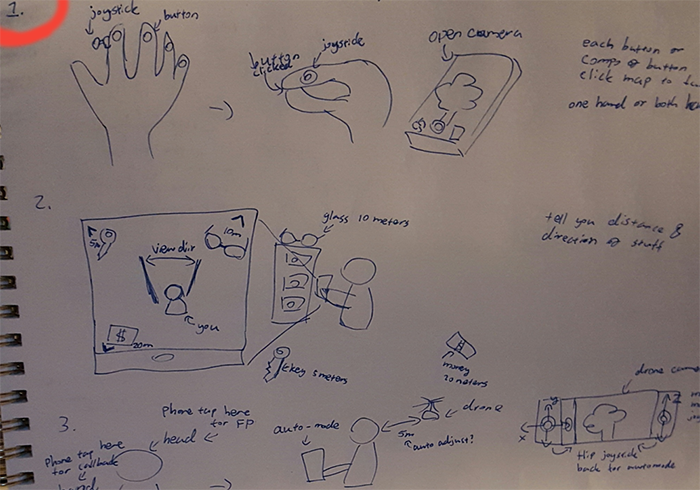 1.
joystick
button
button
clicked
joystick
open camera
each button or
combs of button
click map to
one hand or both
2.
5m
10m
view dir
you
$
20m
glass 10 meters
key 5 meters
tell you distance &
direction of stuff
$
money
20 meters
3.
Phone tap here
for FP
head
Phone tap here
for callback
hand
auto-mode
5m
auto adjust?
drone
drone
x
y
z
flip joystick
back for automode